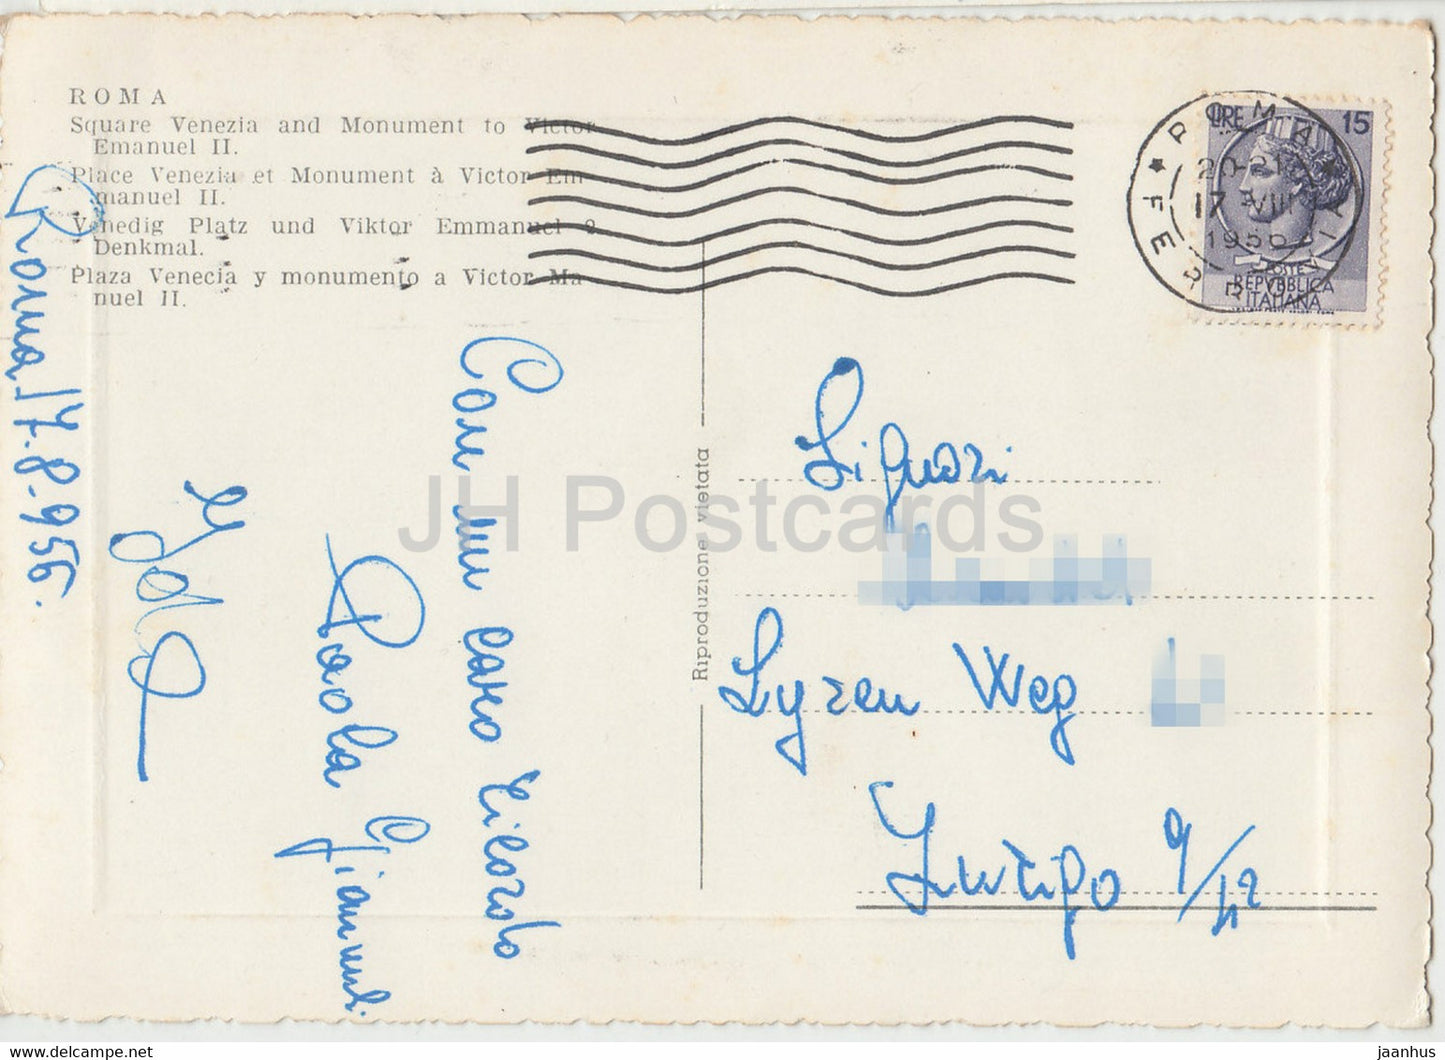 ROMA
Square Venezia and Monument to Victor
Emanuel II.
Place Venezia et Monument à Victor Em-
manuel II.
Venedig Platz und Viktor Emmanuel 2
Denkmal.
Plaza Venecia y monumento a Victor Ma-
nuel II.
Roma 17.8.956.
Con un caro ricordo
Paola
Riproduzione vietata
ROMA FERROVIA
20-21
17 VIII
1956
LIRE 15
POSTE
REPVBBLICA
ITALIANA
Signori
Lyren Weg
Zurigo 9/42
JH Postcards
jaanhus
delcampe.net